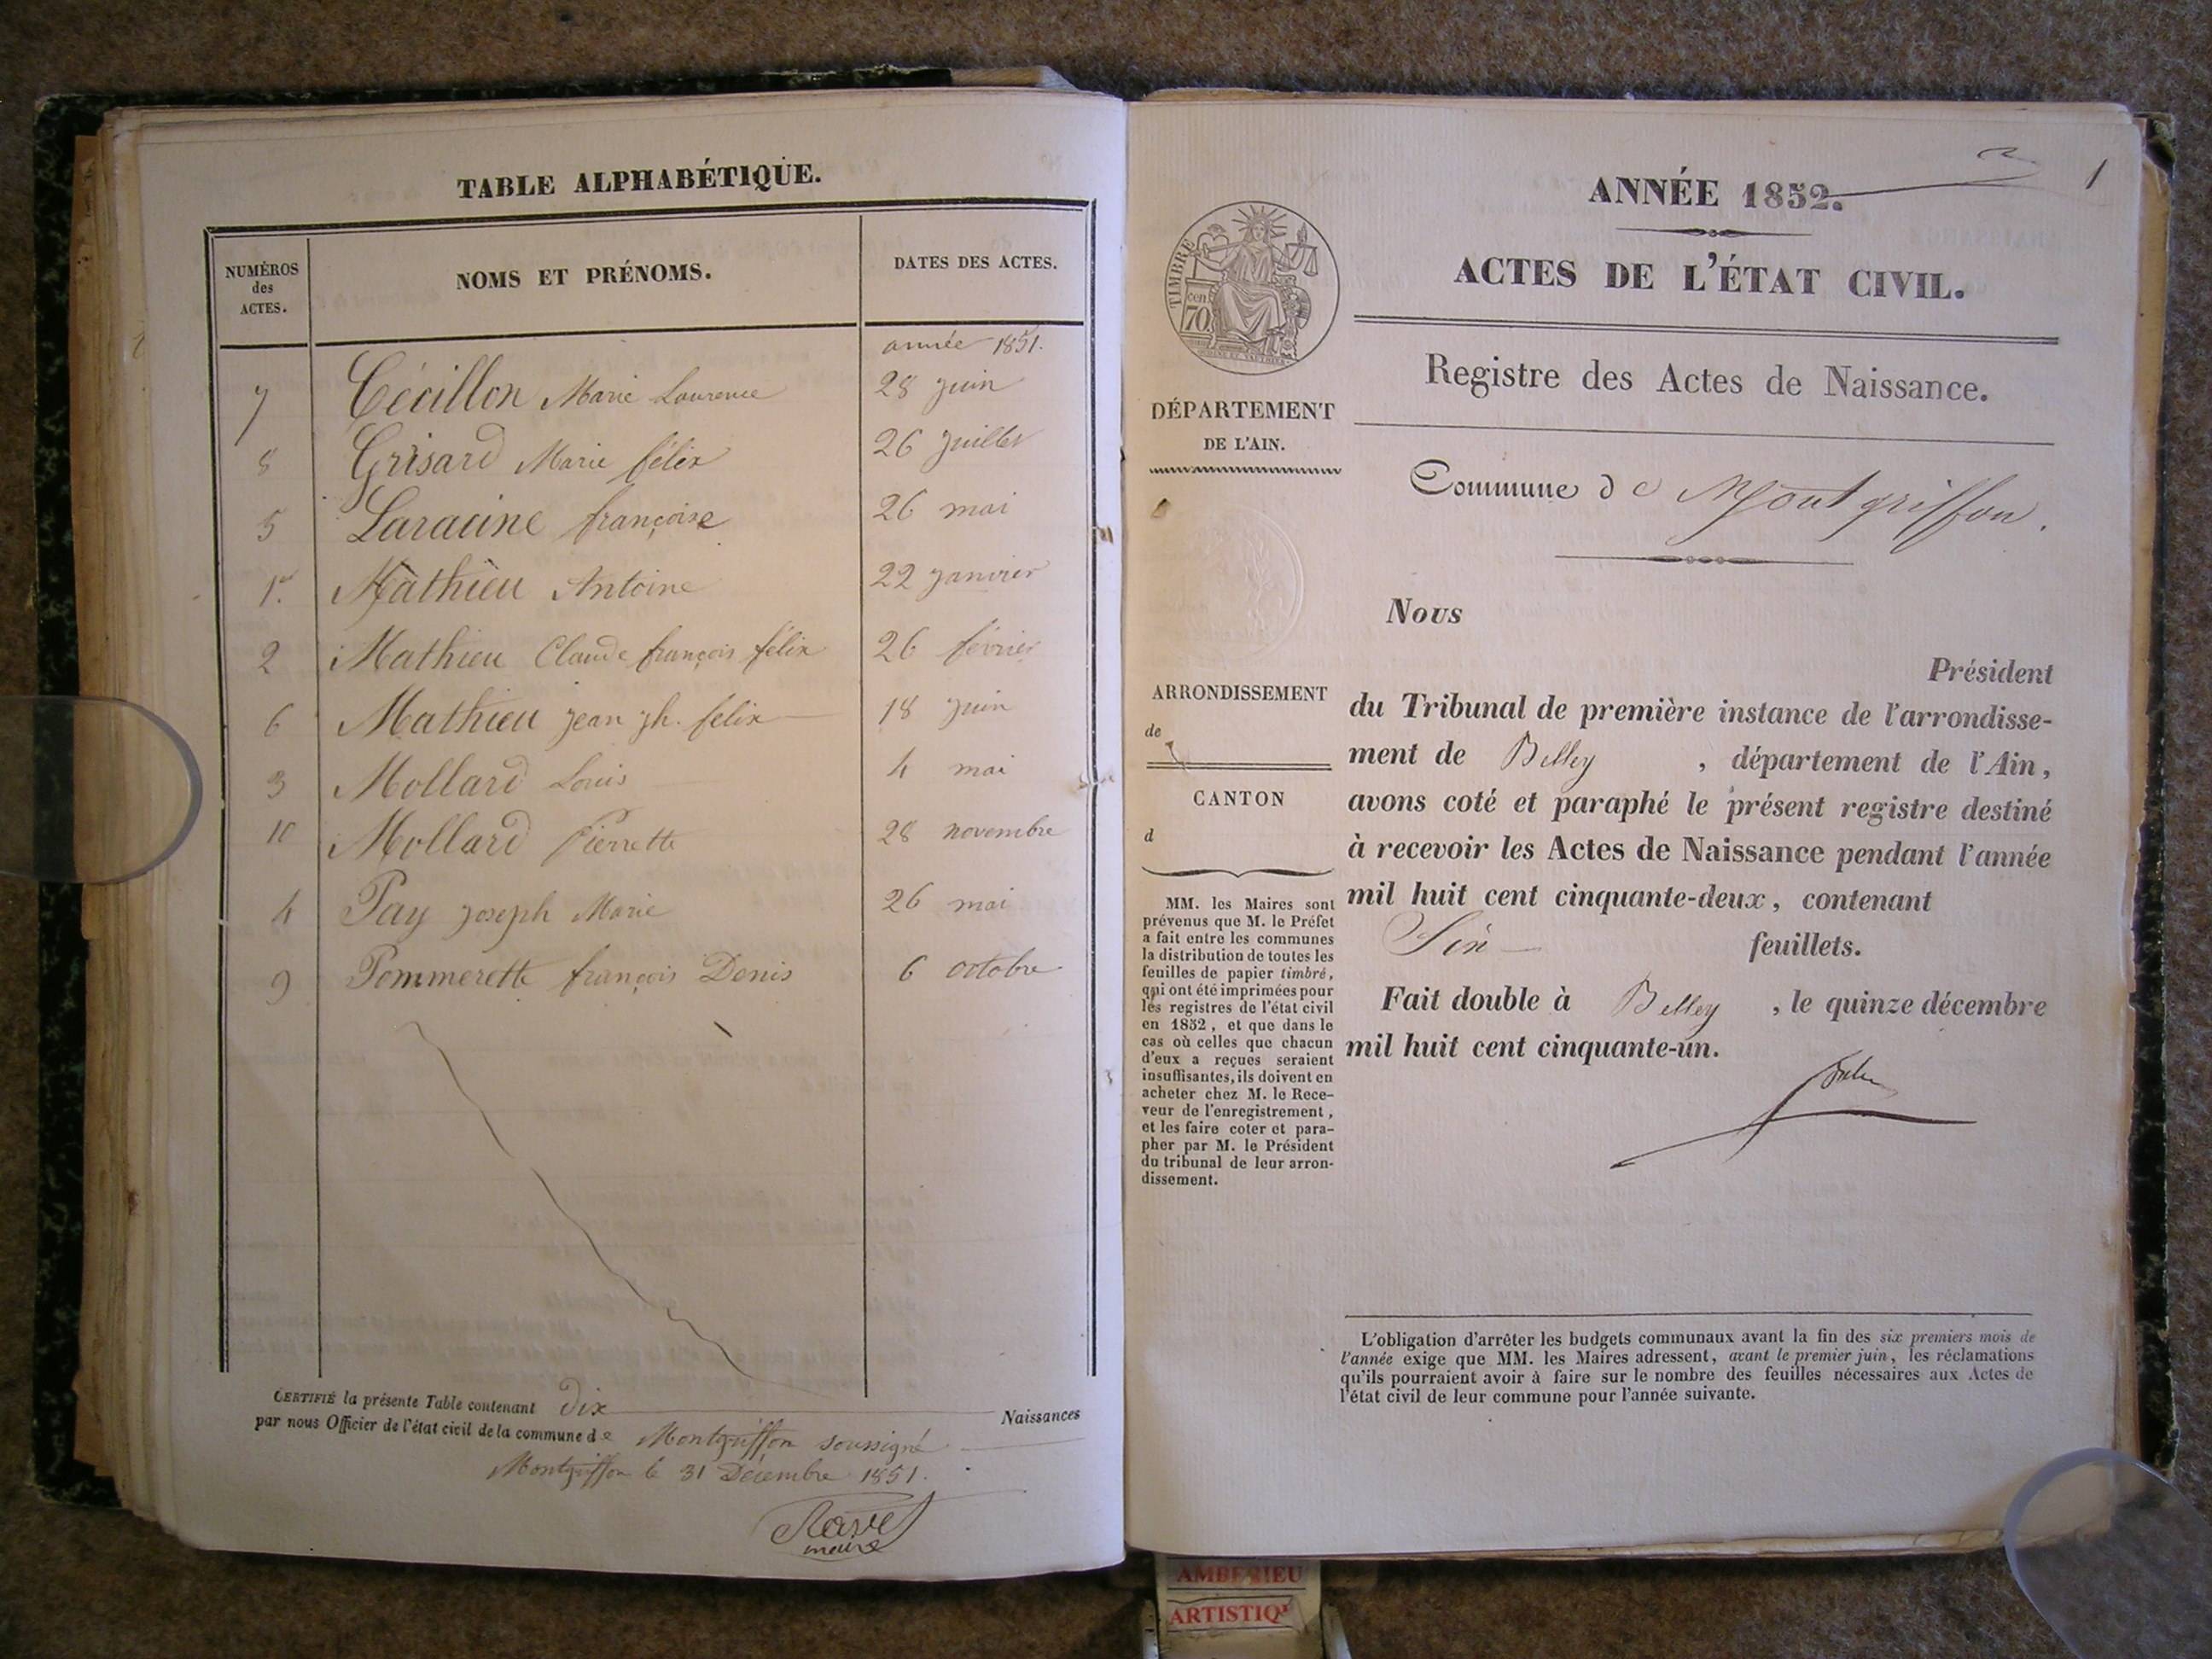 TABLE ALPHABÉTIQUE.
NUMÉROS des ACTES. NOMS ET PRÉNOMS. DATES DES ACTES.
année 1851.
7 Cécillon Marie Laurence 28 juin
8 Grisard Marie félix 26 juillet
5 Laracine françoise 26 mai
1er Mathieu Antoine 22 janvier
2 Mathieu Claude françois félix 26 février
6 Mathieu jean jh. felix 18 juin
3 Mollard Louis 4 mai
10 Mollard Pierrette 28 novembre
4 Pay joseph Marie 26 mai
9 Pommerette françois Denis 6 octobre
CERTIFIÉ la présente Table contenant dix Naissances
par nous Officier de l'état civil de la commune de Montgriffon soussigné
Montgriffon le 31 Décembre 1851.
maire
1
ANNÉE 1852.
ACTES DE L'ÉTAT CIVIL.
TIMBRE
70 cen
Registre des Actes de Naissance.
DÉPARTEMENT
DE L'AIN.
Commune de Montgriffon.
Nous
Président
ARRONDISSEMENT
de
CANTON
d
du Tribunal de première instance de l'arrondisse-
ment de Belley , département de l'Ain,
avons coté et paraphé le présent registre destiné
à recevoir les Actes de Naissance pendant l'année
mil huit cent cinquante-deux, contenant
Six feuillets.
Fait double à Belley , le quinze décembre
mil huit cent cinquante-un.
MM. les Maires sont
prévenus que M. le Préfet
a fait entre les communes
la distribution de toutes les
feuilles de papier timbré,
qui ont été imprimées pour
les registres de l'état civil
en 1852, et que dans le
cas où celles que chacun
d'eux a reçues seraient
insuffisantes, ils doivent en
acheter chez M. le Rece-
veur de l'enregistrement,
et les faire coter et para-
pher par M. le Président
du tribunal de leur arron-
dissement.
L'obligation d'arrêter les budgets communaux avant la fin des six premiers mois de
l'année exige que MM. les Maires adressent, avant le premier juin, les réclamations
qu'ils pourraient avoir à faire sur le nombre des feuilles nécessaires aux Actes de
l'état civil de leur commune pour l'année suivante.
AMBERIEU
ARTISTIQ